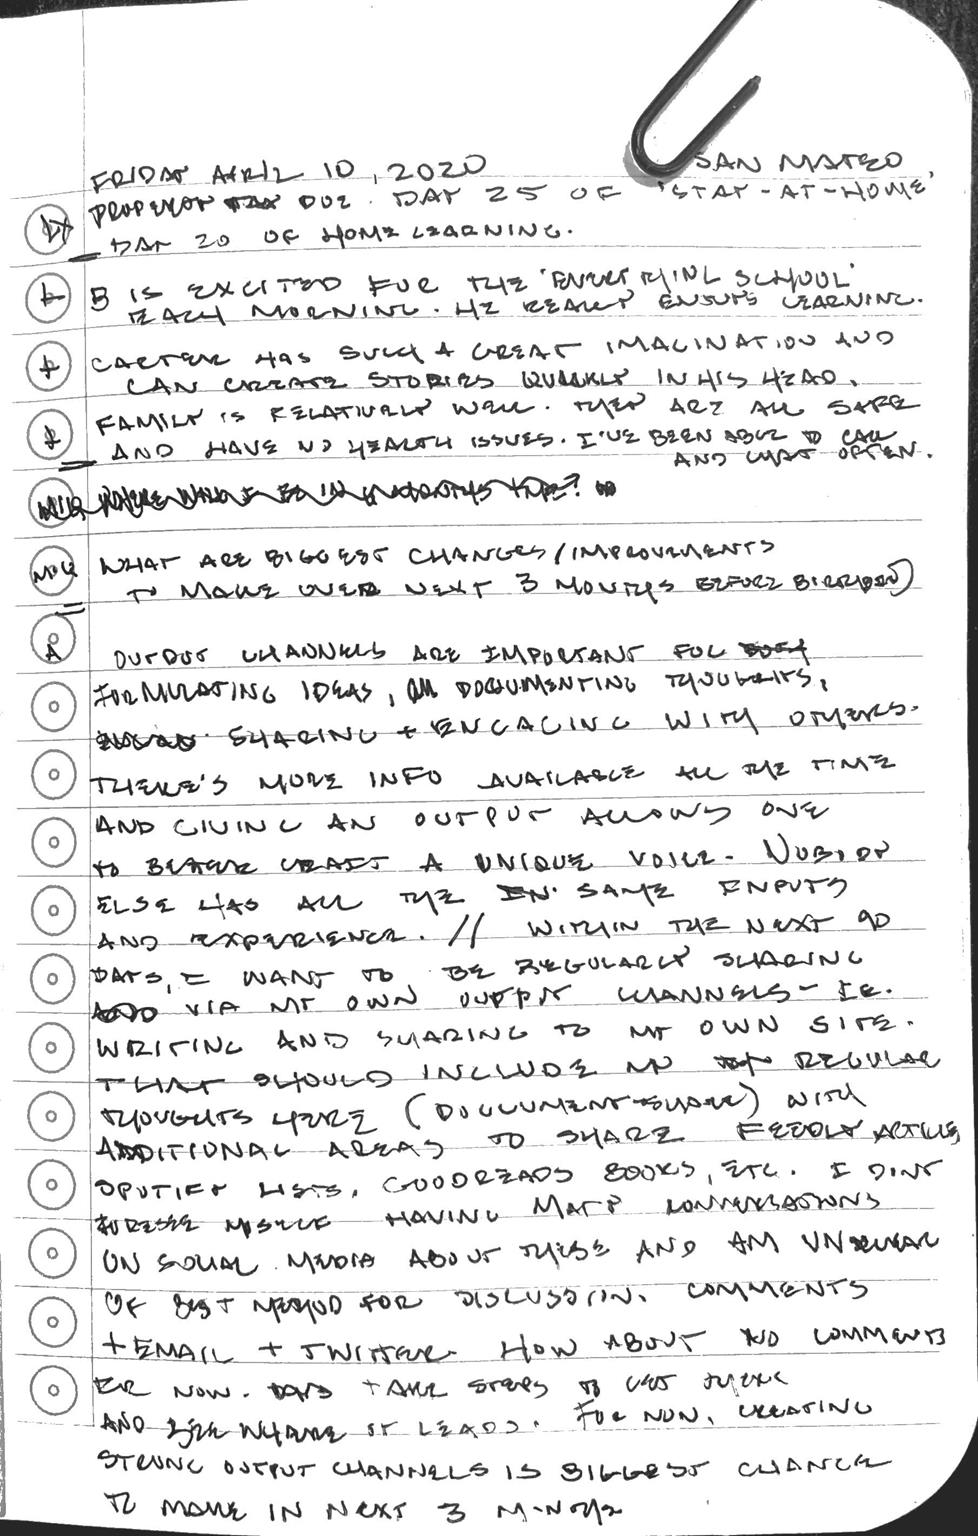 FRIDAY APRIL 10, 2020 SAN MATEO
PROPERTY TAX DUE. DAY 25 OF 'STAY-AT-HOME'
DAY 20 OF HOME LEARNING.
B IS EXCITED FOR THE 'EVERYTHING SCHOOL'
EACH MORNING. HE REALLY ENJOYS LEARNING.
CARTER HAS SUCH A GREAT IMAGINATION AND
CAN CREATE STORIES QUICKLY IN HIS HEAD.
FAMILY IS RELATIVELY WELL. THEY ARE ALL SAFE
AND HAVE NO HEALTH ISSUES. I'VE BEEN ABLE TO CALL
AND CHAT OFTEN.
WHERE WILL I BE IN 6 MONTHS TIME?
WHAT ARE BIGGEST CHANGES/IMPROVEMENTS
TO MAKE OVER NEXT 3 MONTHS BEFORE BIRTHDAY)
A OUTPUT CHANNELS ARE IMPORTANT FOR BOTH
FORMULATING IDEAS, DOCUMENTING THOUGHTS,
SHARING + ENGAGING WITH OTHERS.
THERE'S MORE INFO AVAILABLE ALL THE TIME
AND GIVING AN OUTPUT ALLOWS ONE
TO BETTER CRAFT A UNIQUE VOICE. NOBODY
ELSE HAS ALL THE IN SAME INPUTS
AND EXPERIENCE. // WITHIN THE NEXT 90
DAYS, I WANT TO BE REGULARLY SHARING
VIA MY OWN OUTPUT CHANNELS - IE.
WRITING AND SHARING TO MY OWN SITE.
THAT SHOULD INCLUDE MY REGULAR
THOUGHTS HERE (DOCUMENT-SHARE) WITH
ADDITIONAL AREAS TO SHARE FEEDLY ARTICLES,
SPOTIFY LISTS, GOODREADS BOOKS, ETC. I DON'T
FORESEE MYSELF HAVING MANY CONVERSATIONS
ON SOCIAL MEDIA ABOUT THESE AND AM UNCLEAR
OF BEST METHOD FOR DISCUSSION. COMMENTS
+ EMAIL + TWITTER. HOW ABOUT NO COMMENTS
FOR NOW. TAKE STEPS TO GET THERE
AND SEE WHERE IT LEADS. FOR NOW, CREATING
STRONG OUTPUT CHANNELS IS BIGGEST CHANGE
TO MAKE IN NEXT 3 MONTHS